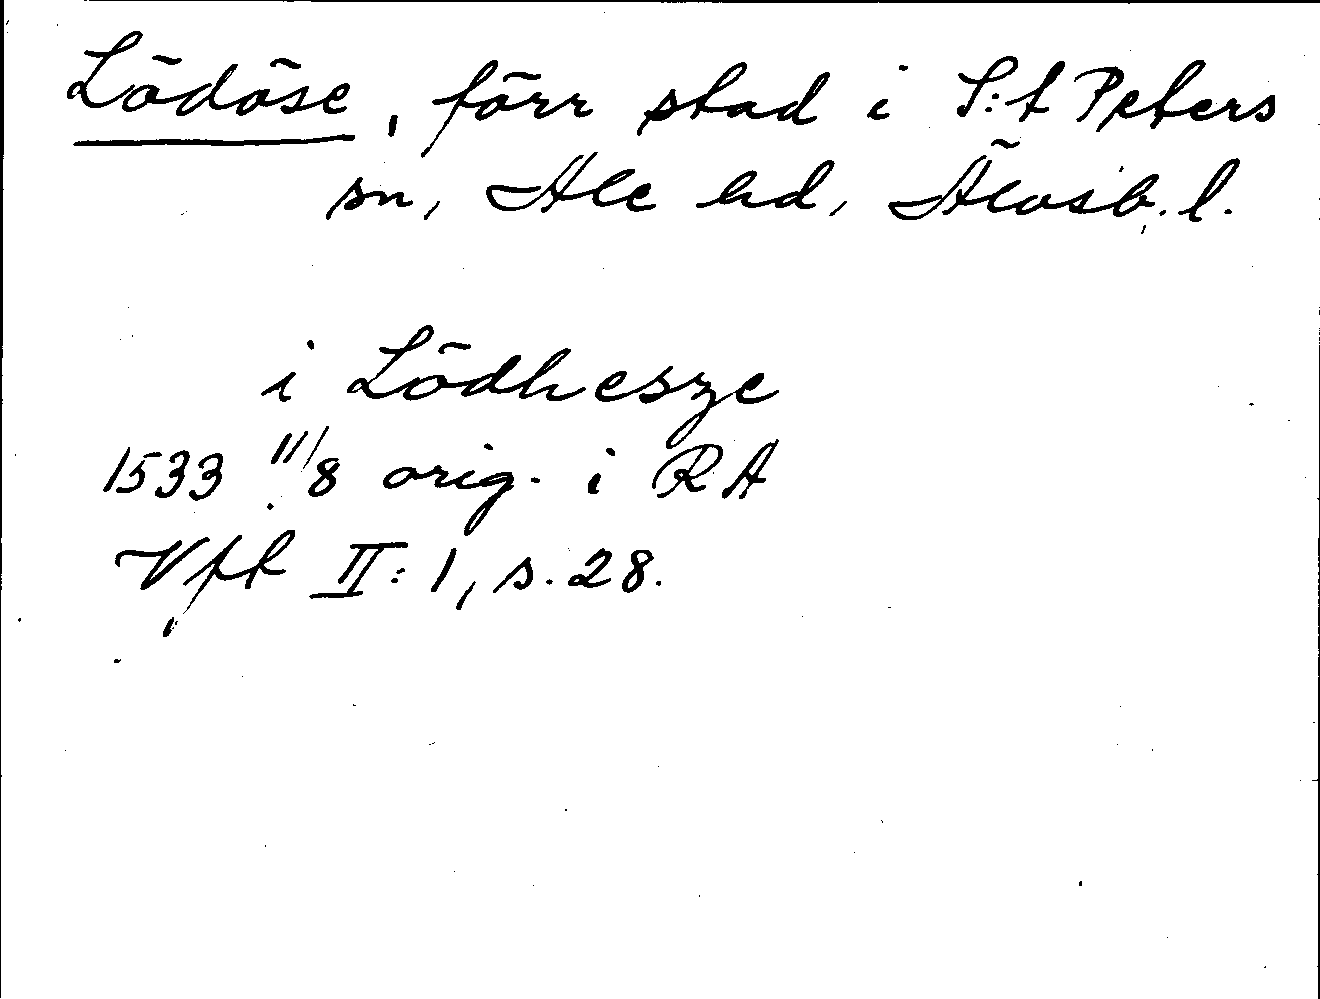 Lödöse, förr stad i S:t Peters
sn, Ale hd, Älvsb. l.
i Lödhesze
1533 11/8 orig. i RA
Vfk II:1, s. 28.